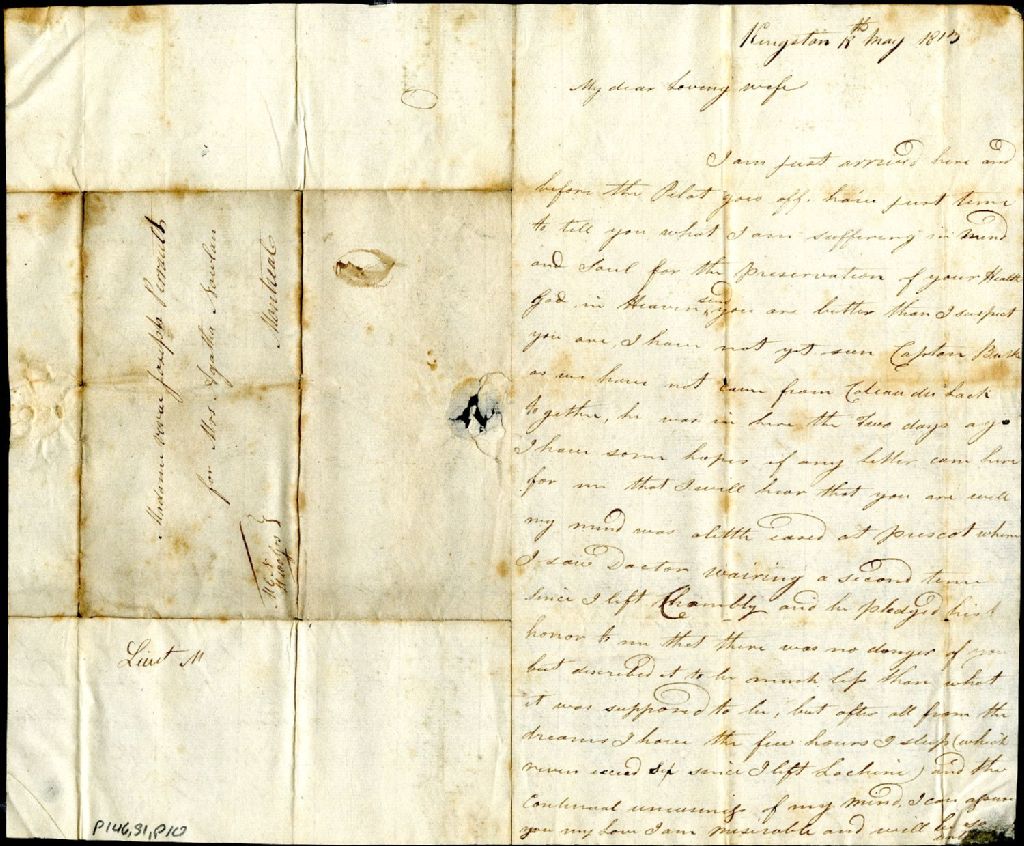 Kingston 1813 May
My dear Loving wife
I am just arrived here and
before the Pilot goes off. have just time
to tell you what I am suffering in mind
and Soul for the Preservation of your Health
God in Heaven send you are better than I suspect
you are, I have not yet seen Captan
as we have not came from back
together, he was in here the two days ago
I have some hopes if any letter came here
for me that I will hear that you are well
my mind was a little eased at prescot where
I saw Doctor wairing a second time
since I left Chambly and he pledged his
honor to me that there was no danger of you
but described it to be much less than what
it was supposed to be; but after all from the
dreams I have the few hours I sleep (which
never exceed six since I left Lachine) and the
Continual uneasiness of my mind. I can assure
you my Love I am miserable and will be
Madame
for Mrs Agatha
Montreal
Lieut M
P146,31,P10